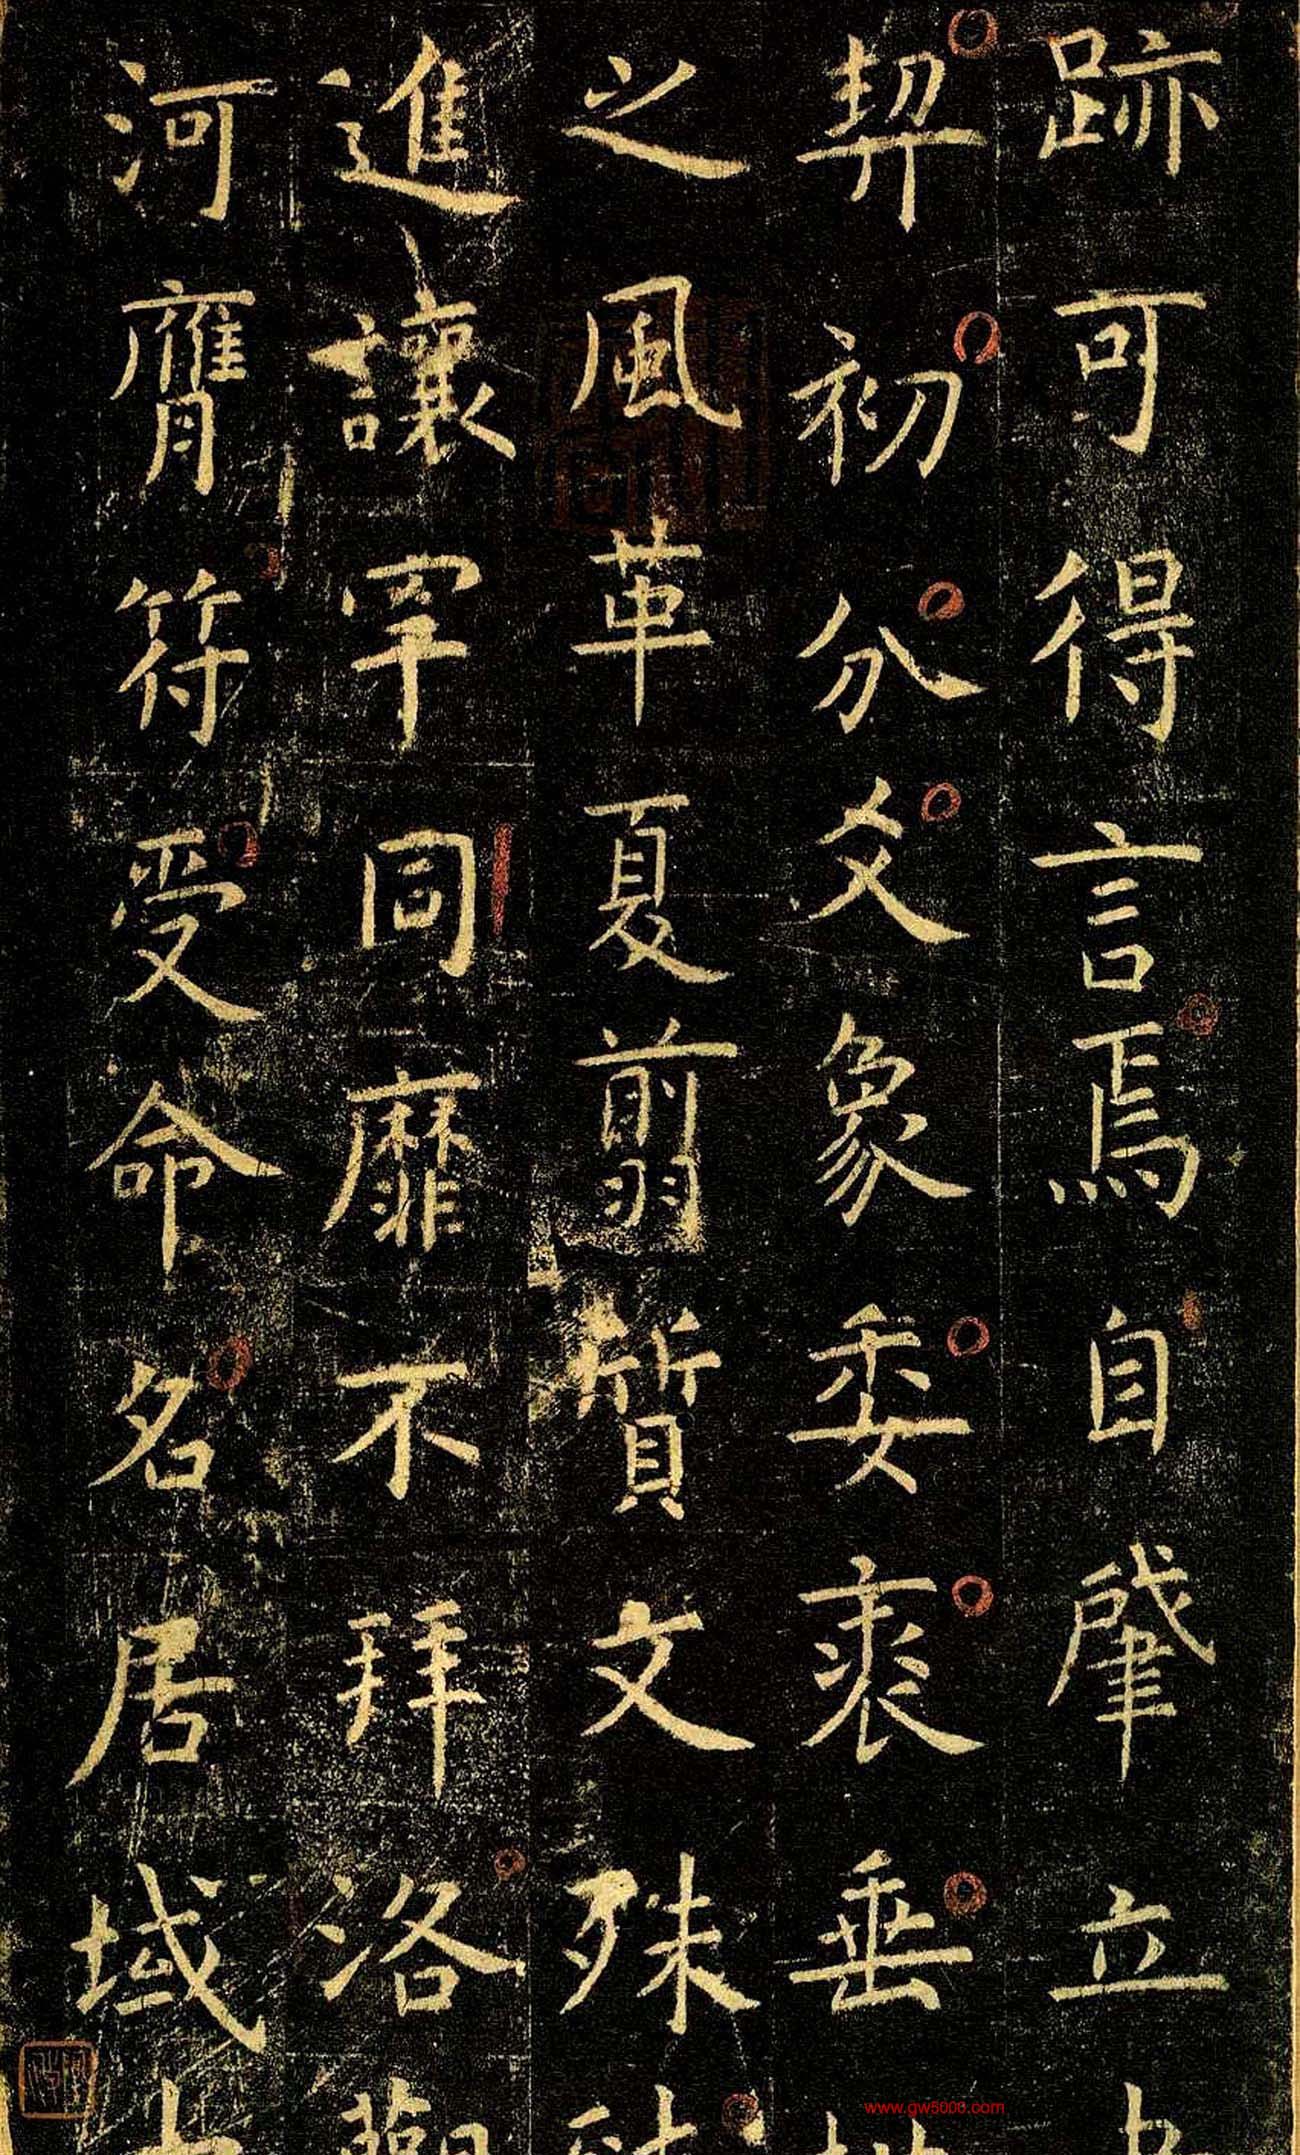 跡可得言焉自肇立
契初分爻象委裘垂
之風革夏翦質文殊
進讓罕同靡不拜洛
河膺符受命名居域
www.gw5000.com